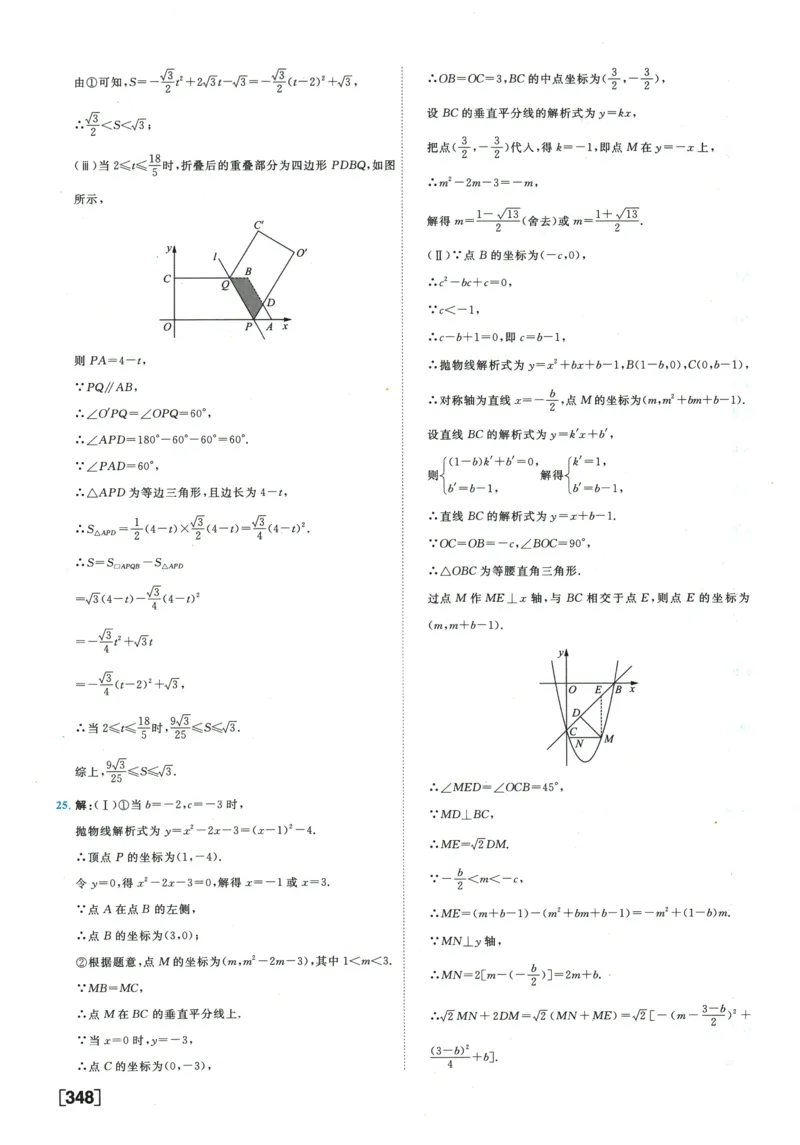 由①可知,S=-√3/2t²+2√3t-√3=-√3/2(t-2)²+√3,
∴√3/2<S<√3;
(ⅲ)当2≤t≤18/5时,折叠后的重叠部分为四边形PDBQ,如图
所示,
y
l
C'
O'
C
Q
B
D
O
P
A
x
则PA=4-t,
∵PQ∥AB,
∴∠O'PQ=∠OPQ=60°,
∴∠APD=180°-60°-60°=60°.
∵∠PAD=60°,
∴△APD为等边三角形,且边长为4-t,
∴S△APD=1/2(4-t)×√3/2(4-t)=√3/4(4-t)².
∴S=S□APQB-S△APD
=√3(4-t)-√3/4(4-t)²
=-√3/4t²+√3t
=-√3/4(t-2)²+√3,
∴当2≤t≤18/5时,9√3/25≤S≤√3.
综上,9√3/25≤S≤√3.
25.解:(Ⅰ)①当b=-2,c=-3时,
抛物线解析式为y=x²-2x-3=(x-1)²-4.
∴顶点P的坐标为(1,-4).
令y=0,得x²-2x-3=0,解得x=-1或x=3.
∵点A在点B的左侧,
∴点B的坐标为(3,0);
②根据题意,点M的坐标为(m,m²-2m-3),其中1<m<3.
∵MB=MC,
∴点M在BC的垂直平分线上.
∵当x=0时,y=-3,
∴点C的坐标为(0,-3),
[348]
∴OB=OC=3,BC的中点坐标为(3/2,-3/2),
设BC的垂直平分线的解析式为y=kx,
把点(3/2,-3/2)代入,得k=-1,即点M在y=-x上,
∴m²-2m-3=-m,
解得m=(1-√13)/2(舍去)或m=(1+√13)/2.
(Ⅱ)∵点B的坐标为(-c,0),
∴c²-bc+c=0,
∵c<-1,
∴c-b+1=0,即c=b-1,
∴抛物线解析式为y=x²+bx+b-1,B(1-b,0),C(0,b-1),
∴对称轴为直线x=-b/2,点M的坐标为(m,m²+bm+b-1).
设直线BC的解析式为y=k'x+b',
则{(1-b)k'+b'=0, b'=b-1, 解得{k'=1, b'=b-1,
∴直线BC的解析式为y=x+b-1.
∵OC=OB=-c,∠BOC=90°,
∴△OBC为等腰直角三角形.
过点M作ME⊥x轴,与BC相交于点E,则点E的坐标为
(m,m+b-1).
y
O
E
B
x
D
C
N
M
∴∠MED=∠OCB=45°,
∵MD⊥BC,
∴ME=√2DM.
∵-b/2<m<-c,
∴ME=(m+b-1)-(m²+bm+b-1)=-m²+(1-b)m.
∵MN⊥y轴,
∴MN=2[m-(-b/2)]=2m+b.
∴√2MN+2DM=√2(MN+ME)=√2[-(m-(3-b)/2)²+
(3-b)²/4+b].